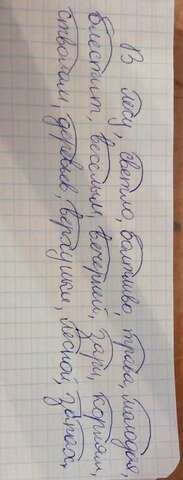 В лесу, светло, болтливо, трава, молодая,
блестит, весёлым, вечерней, зари, корням,
стволам, деревьев, верхушки, лесной, запах,